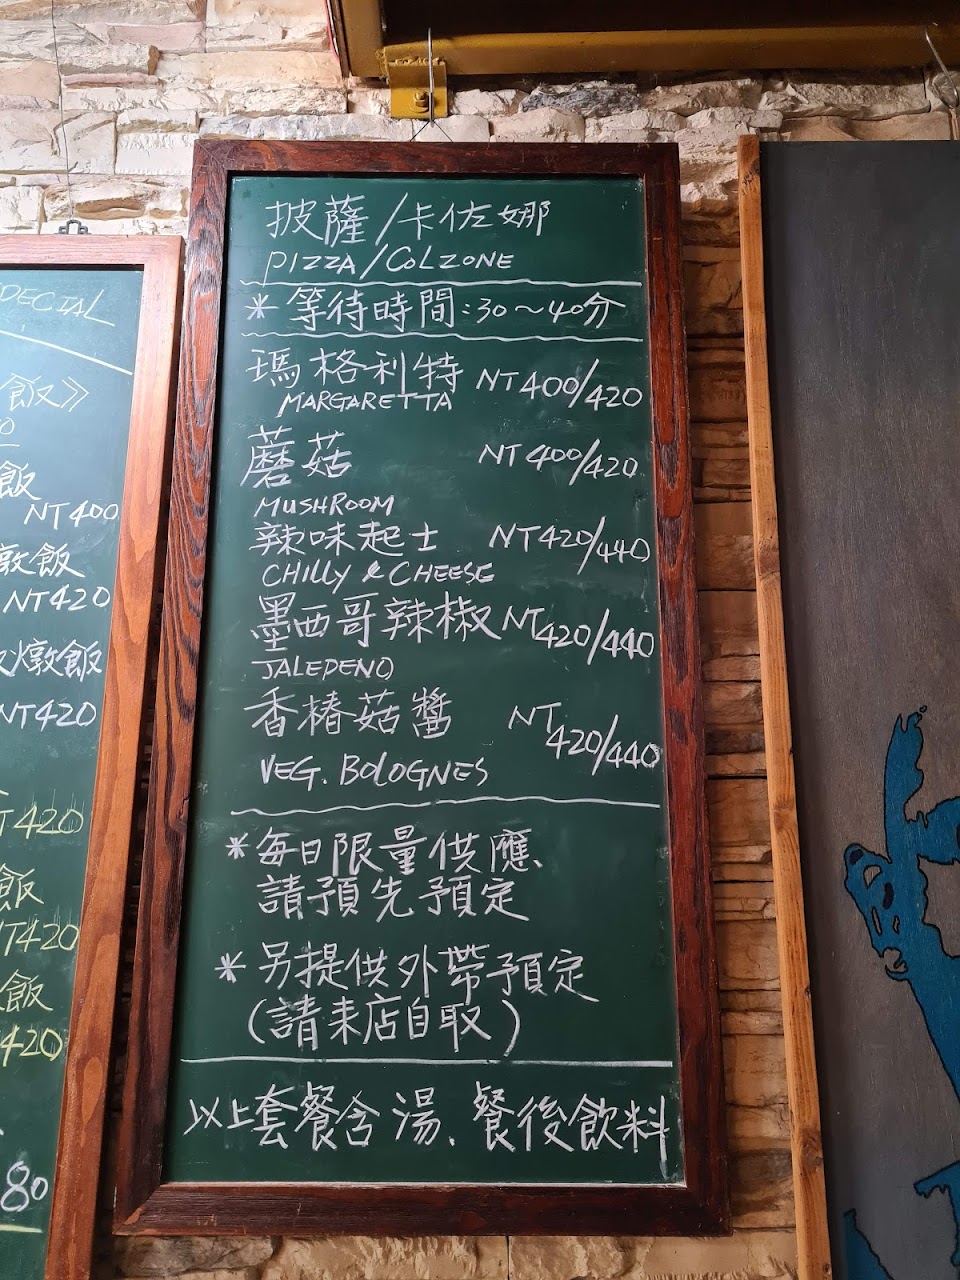 披薩/卡佐娜
PIZZA/COLZONE
*等待時間:30~40分
瑪格利特 NT400/420
MARGARETTA
蘑菇 NT400/420
MUSHROOM
辣味起士 NT420/440
CHILLY & CHEESE
墨西哥辣椒 NT420/440
JALEPENO
香椿菇醬 NT420/440
VEG. BOLOGNES
*每日限量供應、
請預先預定
*另提供外帶預定
(請来店自取)
以上套餐含湯、餐後飲料
飯》
飯
NT400
燉飯
NT420
燉飯
NT420
T420
飯
NT420
飯
420
80